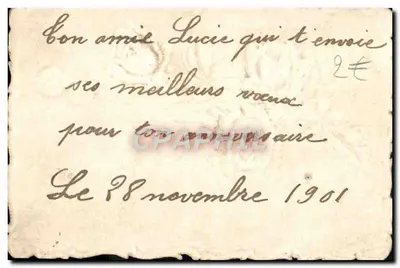 Ton amie Lucie qui t'envoie
2€
ses meilleurs vœux
pour ton anniversaire
CPAPHIL
Le 28 novembre 1901